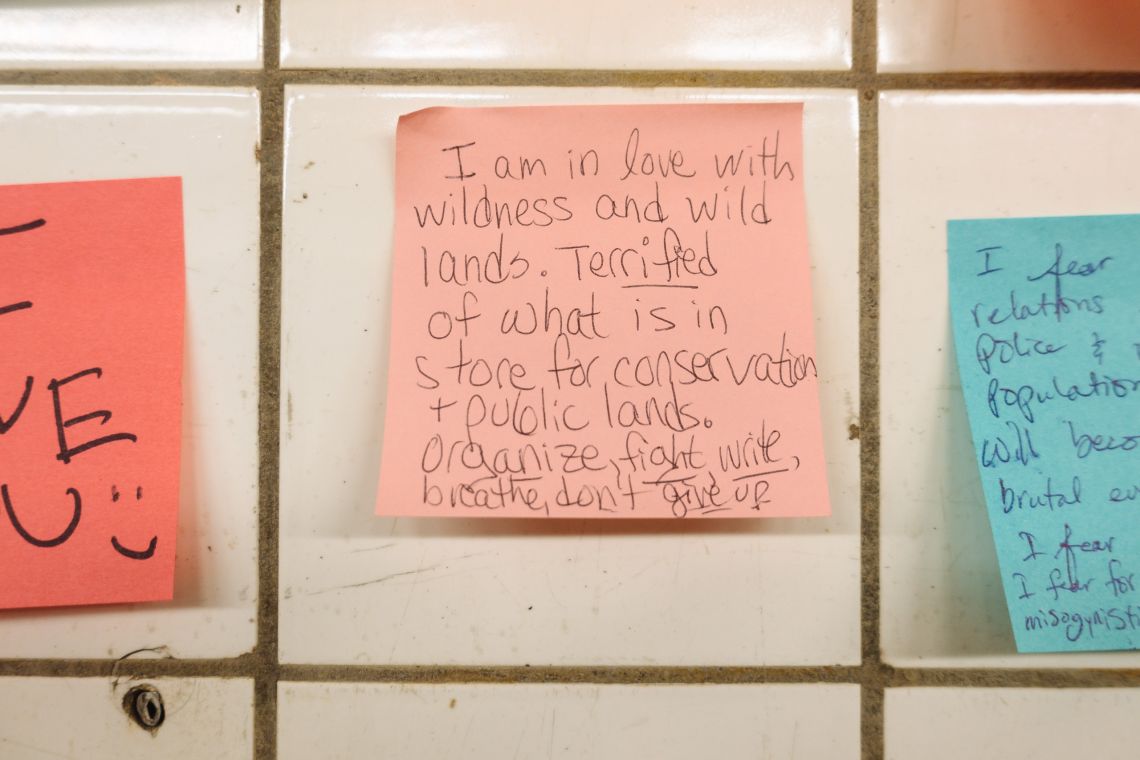 VE
U :)
I am in love with
wildness and wild
lands. Terrified
of what is in
store for conservation
+ public lands.
Organize, fight, write,
breathe, don't give up
I fear
relations
police &
population
will beco
brutal ev
I fear
I fear for
misogynist